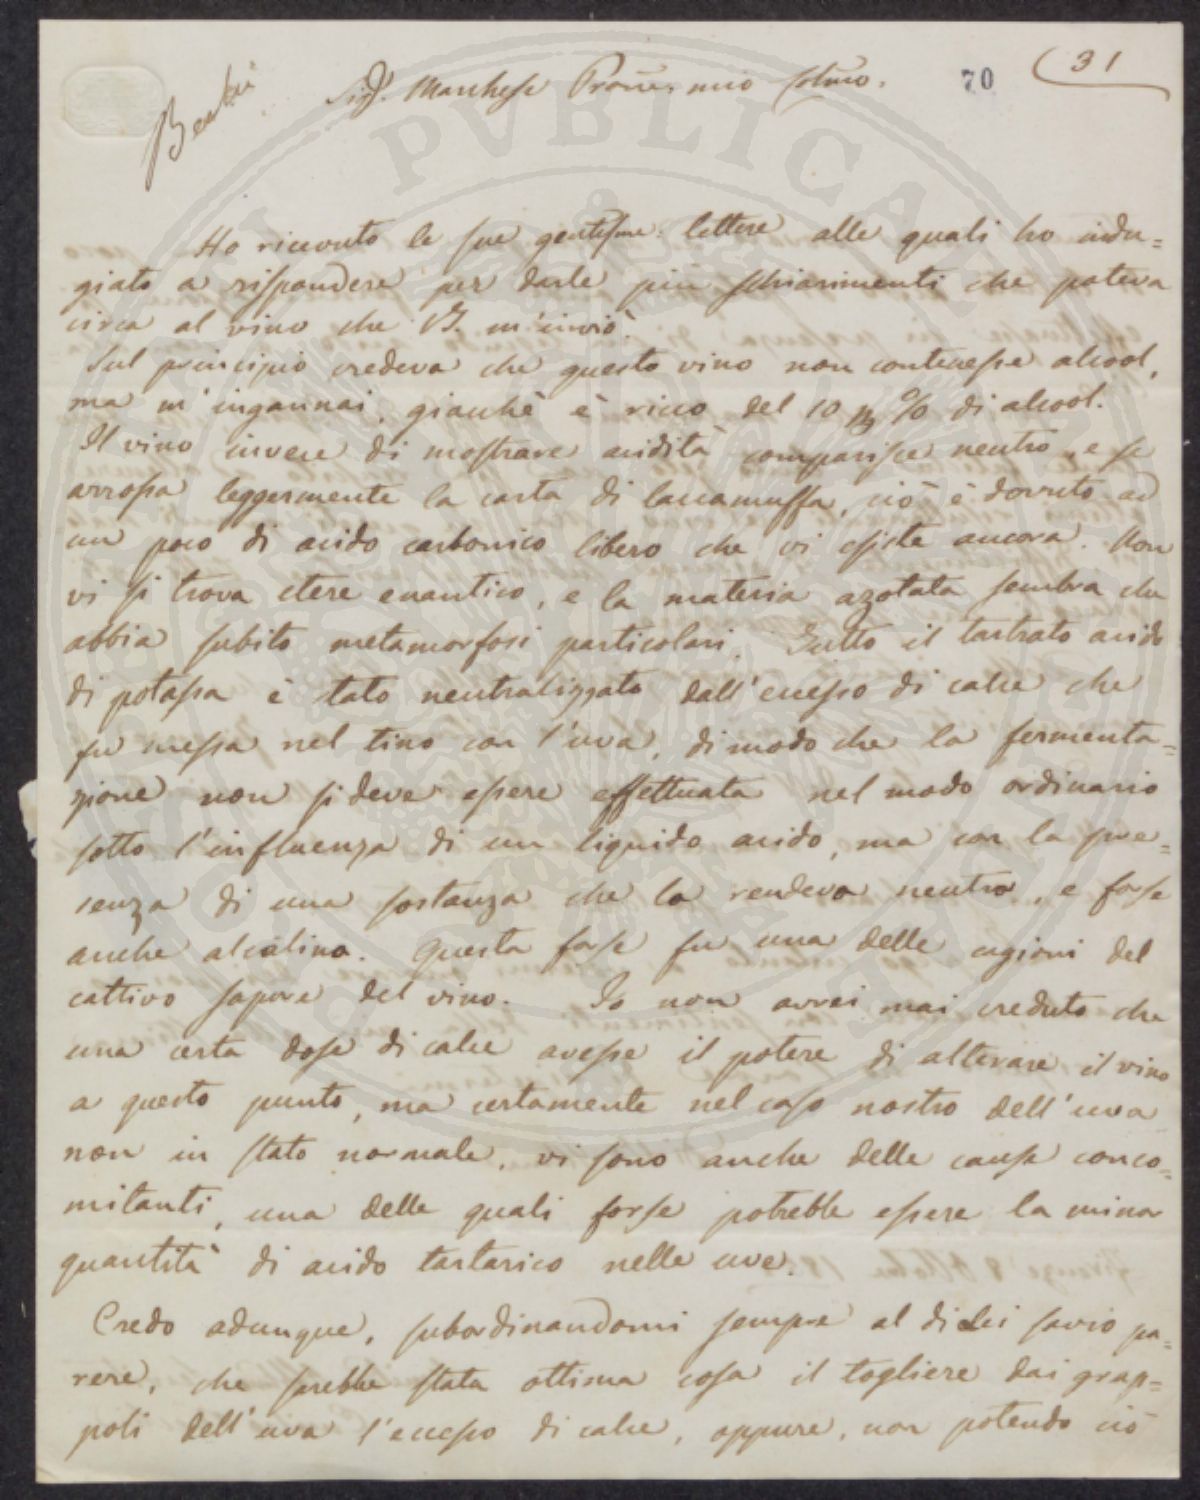 70
31
Sigr. Marchese Prone. mio Colmo.
Ho ricevuto le sue gentisme. lettere alle quali ho indu=
giato a rispondere per darle più schiarimenti che poteva
circa al vino che VS. m'inviò.
Sul principio credeva che questo vino non contenesse alcool,
ma m'ingannai, giacchè è ricco del 10 % di alcool.
Il vino invece di mostrare acidità comparisce neutro, e se
arrossa leggermente la carta di laccamuffa, ciò è dovuto ad
un poco di acido carbonico libero che vi esiste ancora. Non
vi si trova etere enantico, e la materia azotata sembra che
abbia subito metamorfosi particolari. Tutto il tartrato acido
di potassa è stato neutralizzato dall'eccesso di calce che
fu messa nel tino con l'uva, di modo che la fermenta=
zione non si deve essere effettuata nel modo ordinario
sotto l'influenza di un liquido acido, ma con la pre=
senza di una sostanza che la rendeva neutra, e forse
anche alcalina. Questa forse fu una delle cagioni del
cattivo sapore del vino. Io non avrei mai creduto che
una certa dose di calce avesse il potere di alterare il vino
a questo punto, ma certamente nel caso nostro dell'uva
non in stato normale, vi sono anche delle cause conco=
mitanti, una delle quali forse potrebbe essere la minor
quantità di acido tartarico nelle uve.
Credo adunque, subordinandomi sempre al di Lei savio pa=
rere, che sarebbe stata ottima cosa il togliere dai grap=
poli dell'uva l'eccesso di calce, oppure, non potendo ciò
PVBLICAE